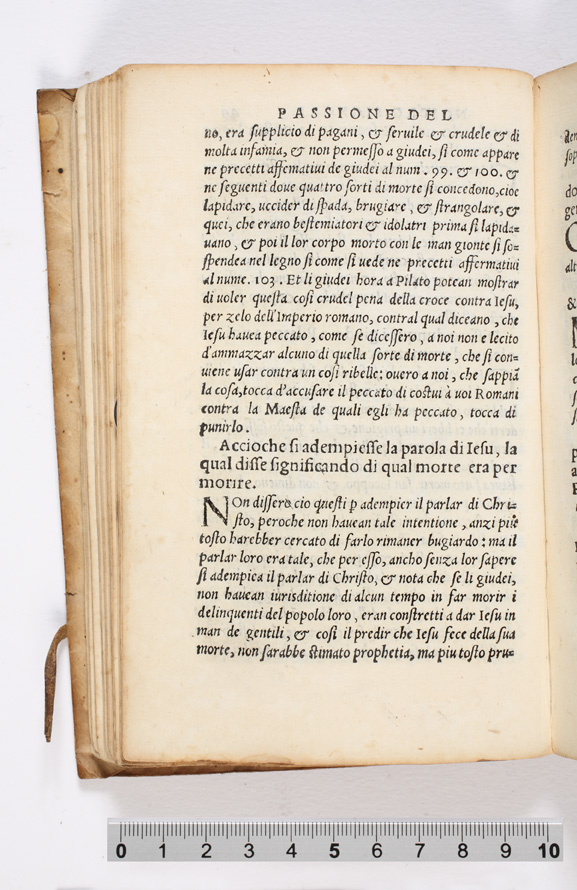 PASSIONE DEL
no, era supplicio di pagani, & seruile & crudele & di
molta infamia, & non permesso a giudei, si come appare
ne precetti affematiui de giudei al num. 99. & 100. &
ne seguenti doue quatro sorti di morte si concedono, cioe
lapidare, uccider di spada, brugiare, & strangolare, &
quei, che erano bestemiatori & idolatri prima si lapida-
uano, & poi il lor corpo morto con le man gionte si so-
spendea nel legno si come si uede ne precetti affermatiui
al nume. 103. Et li giudei hora a Pilato potean mostrar
di uoler questa cosi crudel pena della croce contra Iesu,
per zelo dell'Imperio romano, contral qual diceano, che
Iesu hauea peccato, come se dicessero, a noi non e lecito
d'ammazzar alcuno di quella sorte di morte, che si con-
uiene usar contra un cosi ribelle: ouero a noi, che sappiã
la cosa, tocca d'accusare il peccato di costui à uoi Romani
contra la Maesta de quali egli ha peccato, tocca di
punirlo.
Accioche si adempiesse la parola di Iesu, la
qual disse significando di qual morte era per
morire.
NOn dissero cio questi p adempier il parlar di Chri-
sto, peroche non hauean tale intentione, anzi piu
tosto harebber cercato di farlo rimaner bugiardo: ma il
parlar loro era tale, che per esso, ancho senza lor sapere
si adempiea il parlar di Christo, & nota che se li giudei,
non hauean iurisditione di alcun tempo in far morir i
delinquenti del popolo loro, eran constretti a dar Iesu in
man de gentili, & cosi il predir che Iesu fece della sua
morte, non sarabbe stimato prophetia, ma piu tosto pru-
0 1 2 3 4 5 6 7 8 9 10